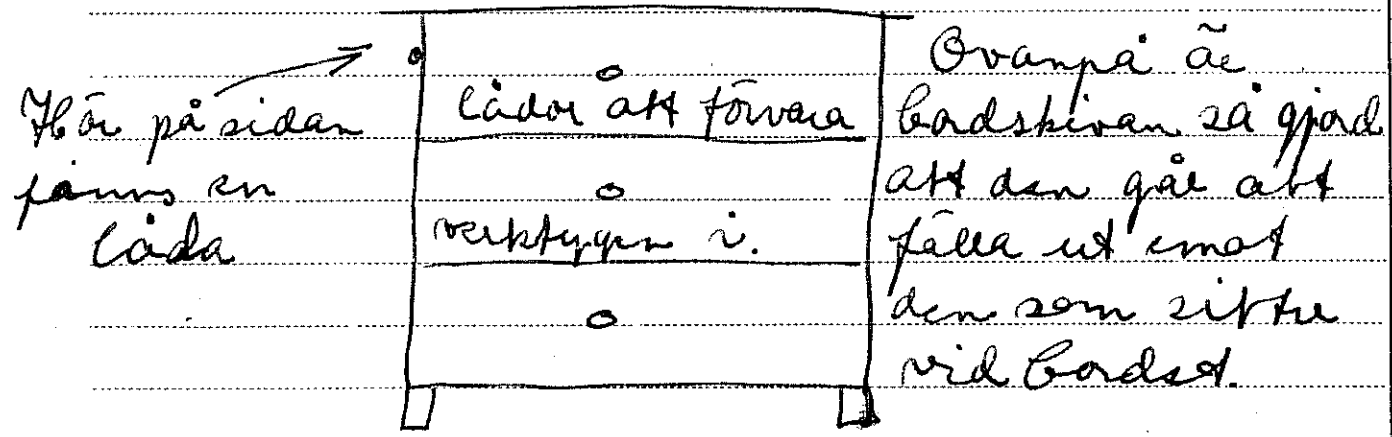 Här på sidan
finns en
låda
lådor att förvara
verktygen i.
Ovanpå är
bordskivan så gjord
att den går att
fälla ut emot
den som sitter
vid bordet.